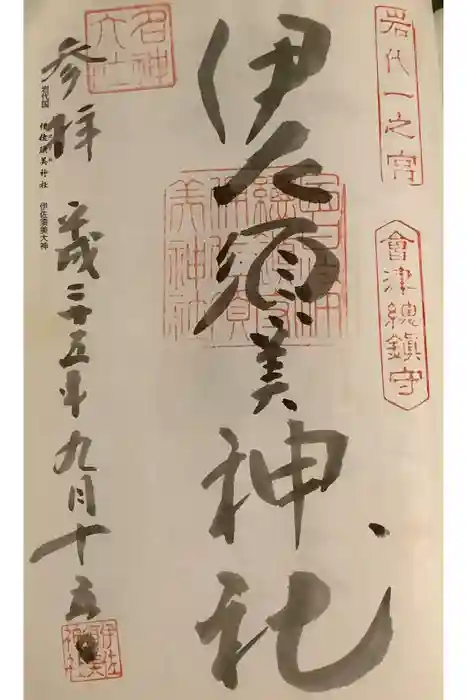 岩代一之宮
會津總鎮守
伊佐須美神社
名神大社
参拝 平成二十五年九月十五日
岩代国 伊佐須美神社 伊佐須美大神